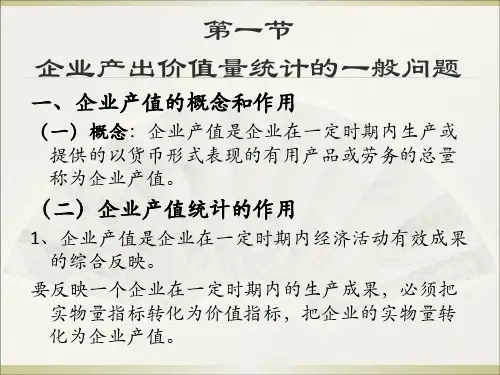 第一节
企业产出价值量统计的一般问题
一、企业产值的概念和作用
（一）概念：企业产值是企业在一定时期内生产或
提供的以货币形式表现的有用产品或劳务的总量
称为企业产值。
（二）企业产值统计的作用
1、企业产值是企业在一定时期内经济活动有效成果
的综合反映。
要反映一个企业在一定时期内的生产成果，必须把
实物量指标转化为价值指标，把企业的实物量转
化为企业产值。